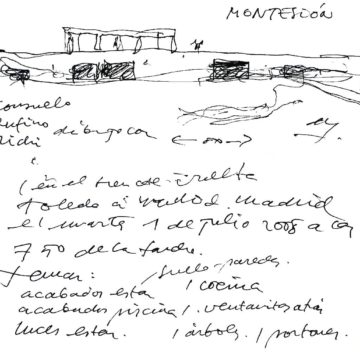 MONTESIÓN
Consuelo
Rufino
Didi dibujo con
en el tren de vuelta
Toledo a Madrid. Madrid
el martes 1 de julio 2008 a las
7 50 de la tarde.
temas: suelo-paredes
acabados estar / cocina
acabados piscina / ventanitas atrás
luces estar. / árboles. / portones.